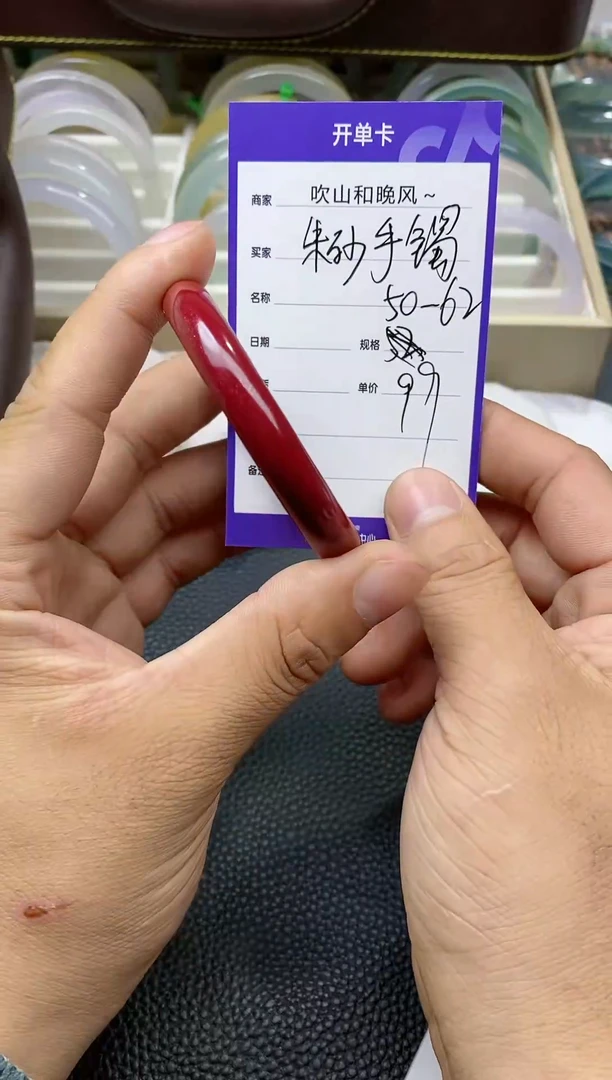 开单卡
商家 吹山和晚风~
买家 朱砂手镯
名称 50-62
日期 规格
单价 99
备注
中心